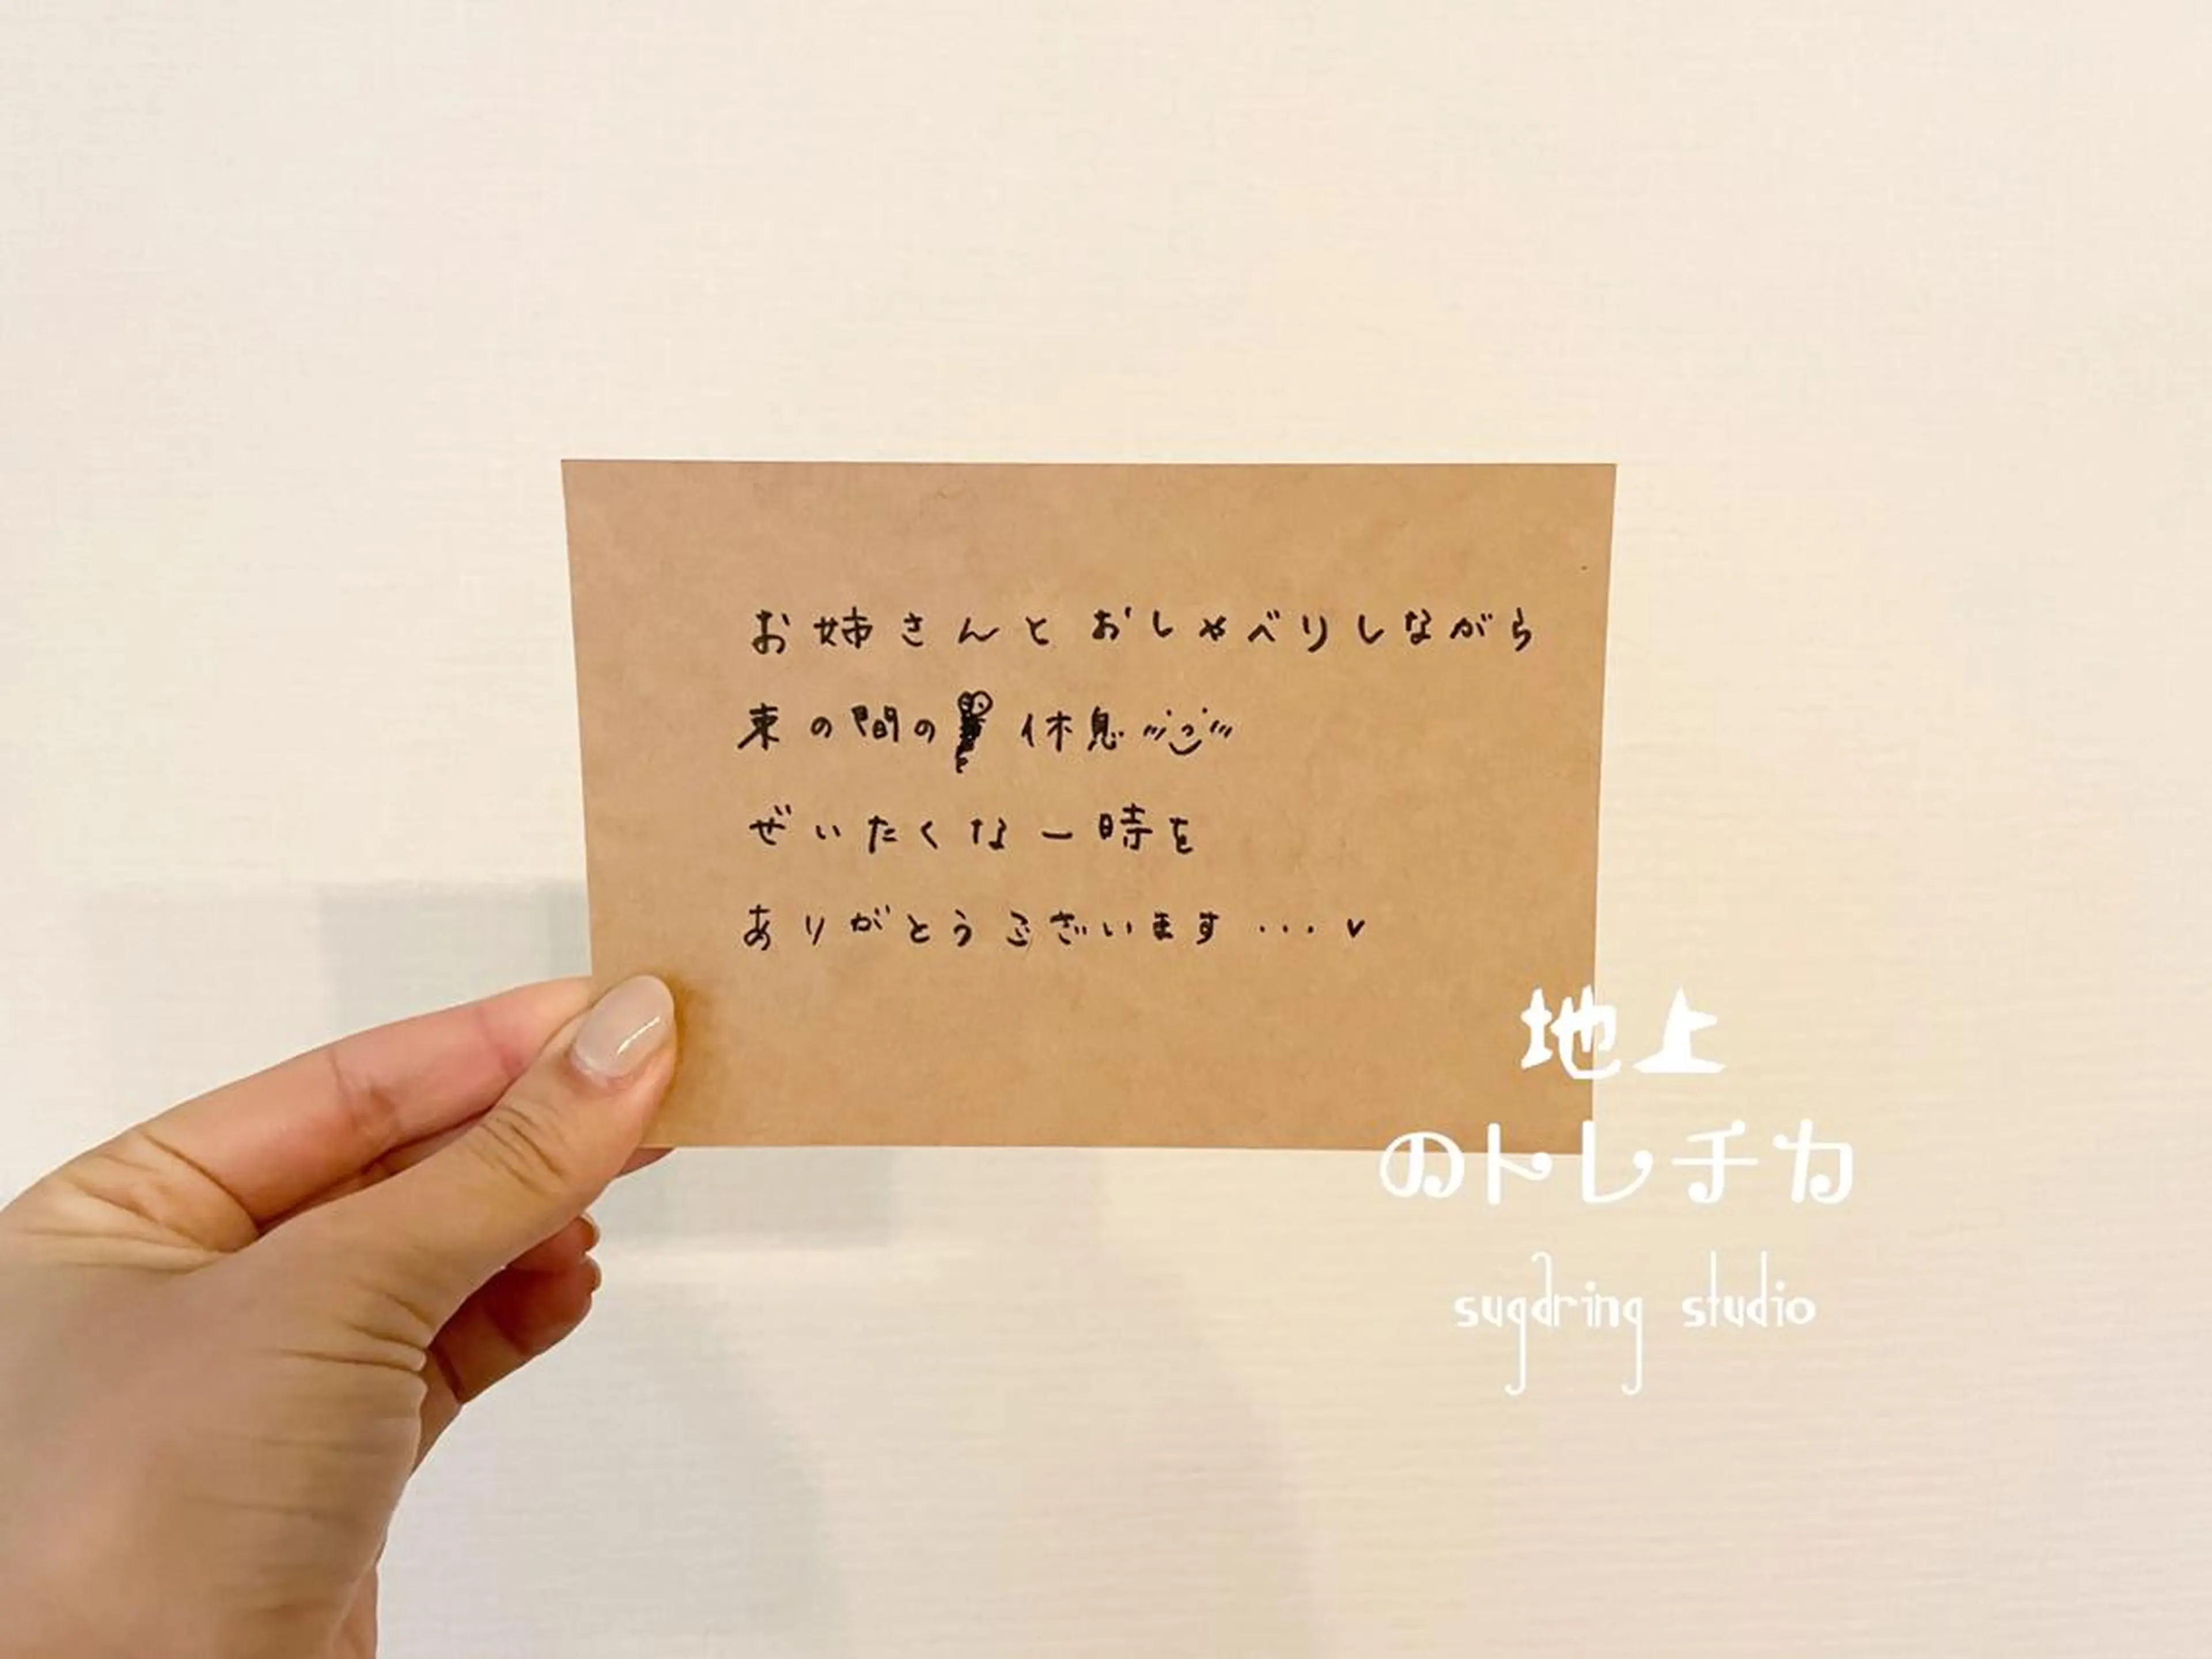 お姉さんとおしゃべりしながら
束の間の休息
ぜいたくな一時を
ありがとうございます…♥
地上
のトレチカ
sugaring studio